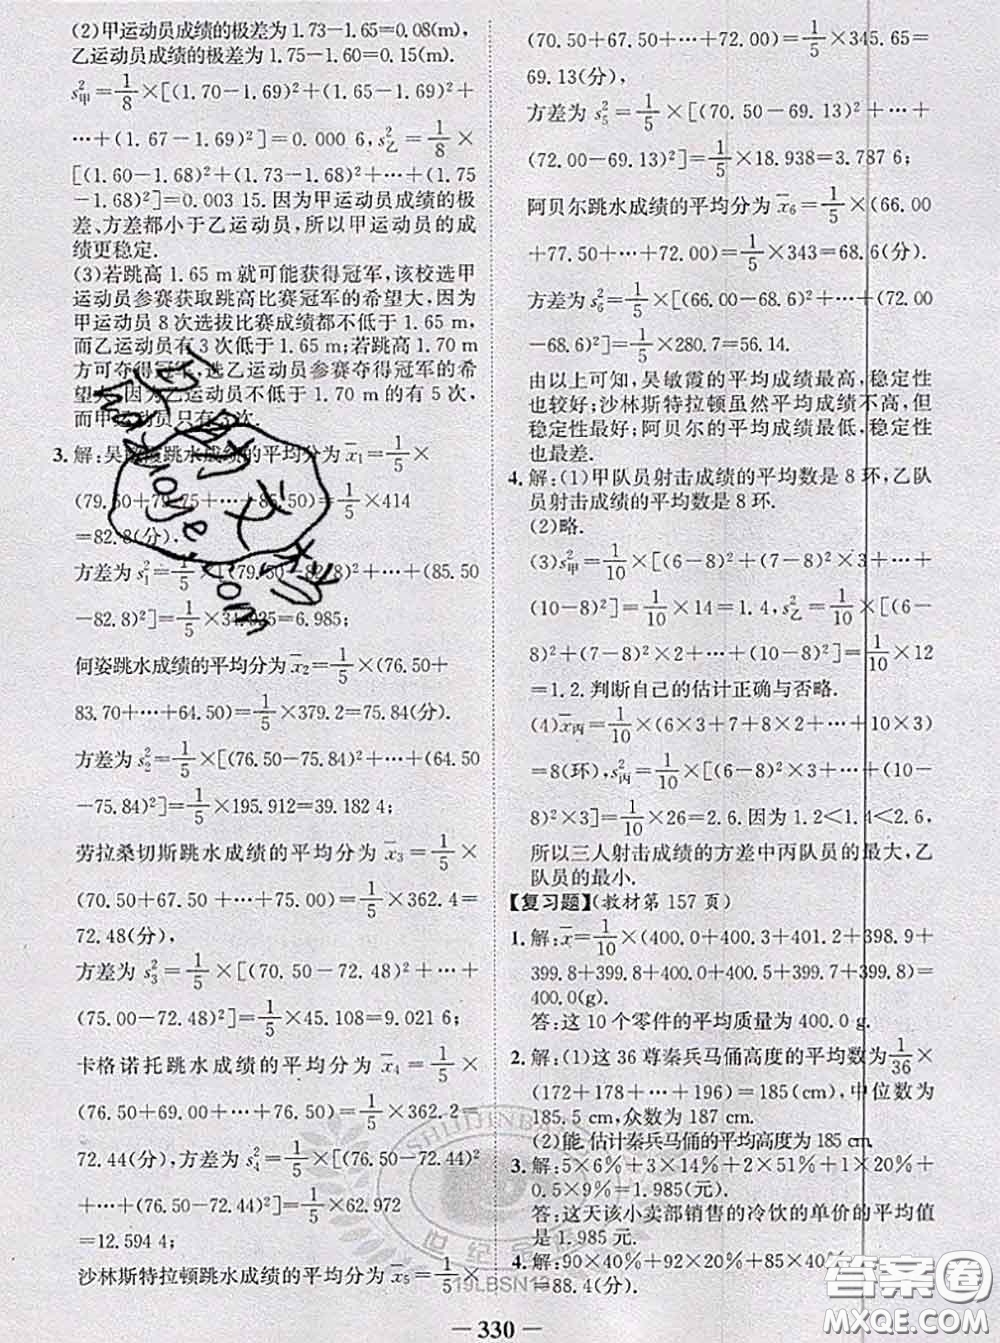 (2)甲运动员成绩的极差为 1.73-1.65=0.08(m),
乙运动员成绩的极差为 1.75-1.60=0.15(m).
s²甲=1/8×[(1.70-1.69)²+(1.65-1.69)²+
…+(1.67-1.69)²]=0.000 6,s²乙=1/8×
[(1.60-1.68)²+(1.73-1.68)²+…+(1.75
-1.68)²]=0.003 15. 因为甲运动员成绩的极
差、方差都小于乙运动员,所以甲运动员的成
绩更稳定.
(3)若跳高 1.65 m 就可能获得冠军,该校选甲
运动员参赛获取跳高比赛冠军的希望大,因为
甲运动员 8 次选拔比赛成绩都不低于 1.65 m,
而乙运动员有 3 次低于 1.65 m;若跳高 1.70 m
方可夺得冠军,选乙运动员参赛夺得冠军的希
望大,因为乙运动员不低于 1.70 m 的有 5 次,
而甲运动员只有 次.
3. 解:吴敏霞跳水成绩的平均分为 x̄₁=1/5×
(79.50+79.75+…+85.50)=1/5×414
=82.8(分),
方差为 s₁²=1/5×[(79.50-82.8)²+…+(85.50
-82.8)²]=1/5×34.925=6.985;
何姿跳水成绩的平均分为 x̄₂=1/5×(76.50+
83.70+…+64.50)=1/5×379.2=75.84(分).
方差为 s₂²=1/5×[(76.50-75.84)²+…+(64.50
-75.84)²]=1/5×195.912=39.182 4;
劳拉桑切斯跳水成绩的平均分为 x̄₃=1/5×
(70.50+67.50+…+75.00)=1/5×362.4=
72.48(分),
方差为 s₃²=1/5×[(70.50-72.48)²+…+
(75.00-72.48)²]=1/5×45.108=9.021 6;
卡格诺托跳水成绩的平均分为 x̄₄=1/5×
(76.50+69.00+…+76.50)=1/5×362.2=
72.44(分),方差为 s₄²=1/5×[(76.50-72.44)²
+…+(76.50-72.44)²]=1/5×62.972
=12.594 4;
沙林斯特拉顿跳水成绩的平均分为 x̄₅=1/5×
(70.50+67.50+…+72.00)=1/5×345.65=
69.13(分),
方差为 s₅²=1/5×[(70.50-69.13)²+…+
(72.00-69.13)²]=1/5×18.938=3.787 6;
阿贝尔跳水成绩的平均分为 x̄₆=1/5×(66.00
+77.50+…+72.00)=1/5×343=68.6(分).
方差为 s₆²=1/5×[(66.00-68.6)²+…+(72.00
-68.6)²]=1/5×280.7=56.14.
由以上可知,吴敏霞的平均成绩最高,稳定性
也较好;沙林斯特拉顿虽然平均成绩不高,但
稳定性最好;阿贝尔的平均成绩最低,稳定性
也最差.
4. 解:(1)甲队员射击成绩的平均数是 8 环,乙队
员射击成绩的平均数是 8 环.
(2)略.
(3)s²甲=1/10×[(6-8)²+(7-8)²×2+…+
(10-8)²]=1/10×14=1.4,s²乙=1/10×[(6-
8)²+(7-8)²×2+…+(10-8)²]=1/10×12
=1.2. 判断自己的估计正确与否略.
(4)x̄丙=1/10×(6×3+7+8×2+…+10×3)
=8(环),s²丙=1/10×[(6-8)²×3+…+(10-
8)²×3]=1/10×26=2.6. 因为 1.2<1.4<2.6,
所以三人射击成绩的方差中丙队员的最大,乙
队员的最小.
【复习题】(教材第 157 页)
1. 解:x̄=1/10×(400.0+400.3+401.2+398.9+
399.8+399.8+400.0+400.5+399.7+399.8)=
400.0(g).
答:这 10 个零件的平均质量为 400.0 g.
2. 解:(1)这 36 尊秦兵马俑高度的平均数为 1/36×
(172+178+…+196)=185(cm),中位数为
185.5 cm,众数为 187 cm.
(2)能.估计秦兵马俑的平均高度为 185 cm.
3. 解:5×6%+3×14%+2×51%+1×20%+
0.5×9%=1.985(元).
答:这天该小卖部销售的冷饮的单价的平均值
是 1.985 元.
4. 解:90×40%+92×20%+85×
=88.4(分).
19LBSN13
世纪
答案圈
MXQE.COM
— 330 —